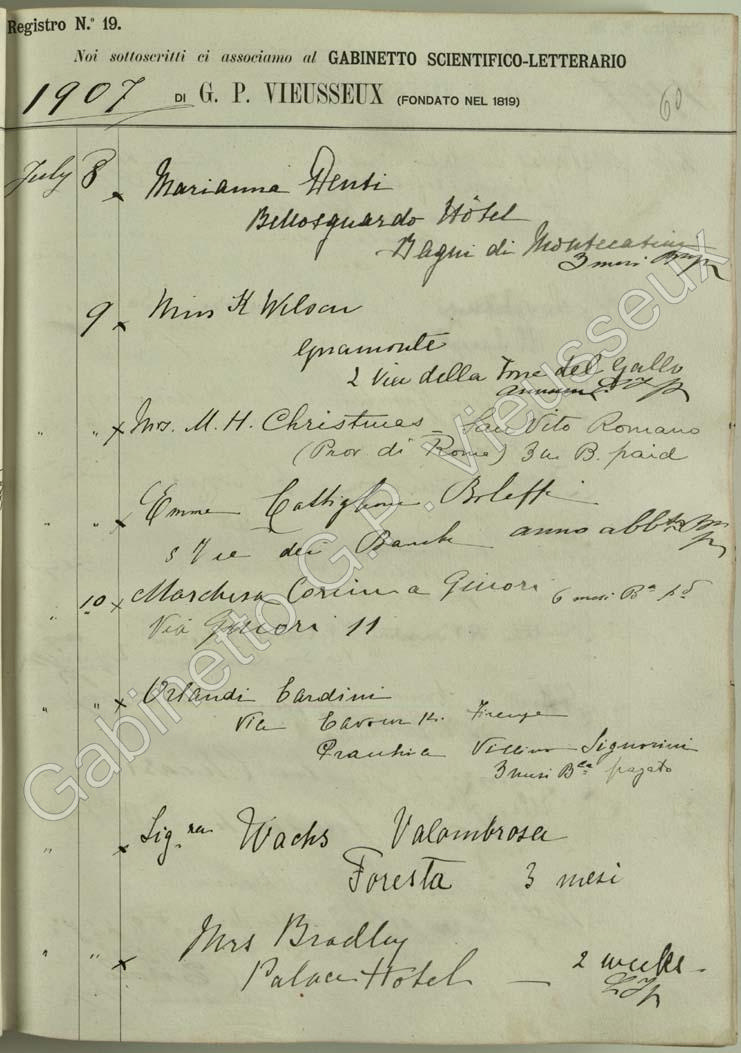 Registro N.º 19.
Noi sottoscritti ci associamo al GABINETTO SCIENTIFICO-LETTERARIO
1907 DI G. P. VIEUSSEUX (FONDATO NEL 1819) 60
July 8 x Marianna
Bellosguardo Hôtel
Bagni di Montecatini
3 mesi
9 x Miss K Wilson
Gramonte
2 Via della Torre del Gallo
" " x Mrs. M. H. Christmas – San Vito Romano
(Prov. di Roma) 3 m B. paid
" " x Emma
5 Via dei anno abbto
" 10 x Marchesa Corsina Ginori 6 mesi Bª pd
Via Ginori 11
" " x Orlandi Cardini
Via Cavour Firenze
Villino Signorini
3 mesi pagato
" x Sig.ra Wachs Valombrosa
Foresta 3 mesi
" " x Mrs Bradley
Palace Hôtel — 2 weeks
Gabinetto G.P. Vieusseux